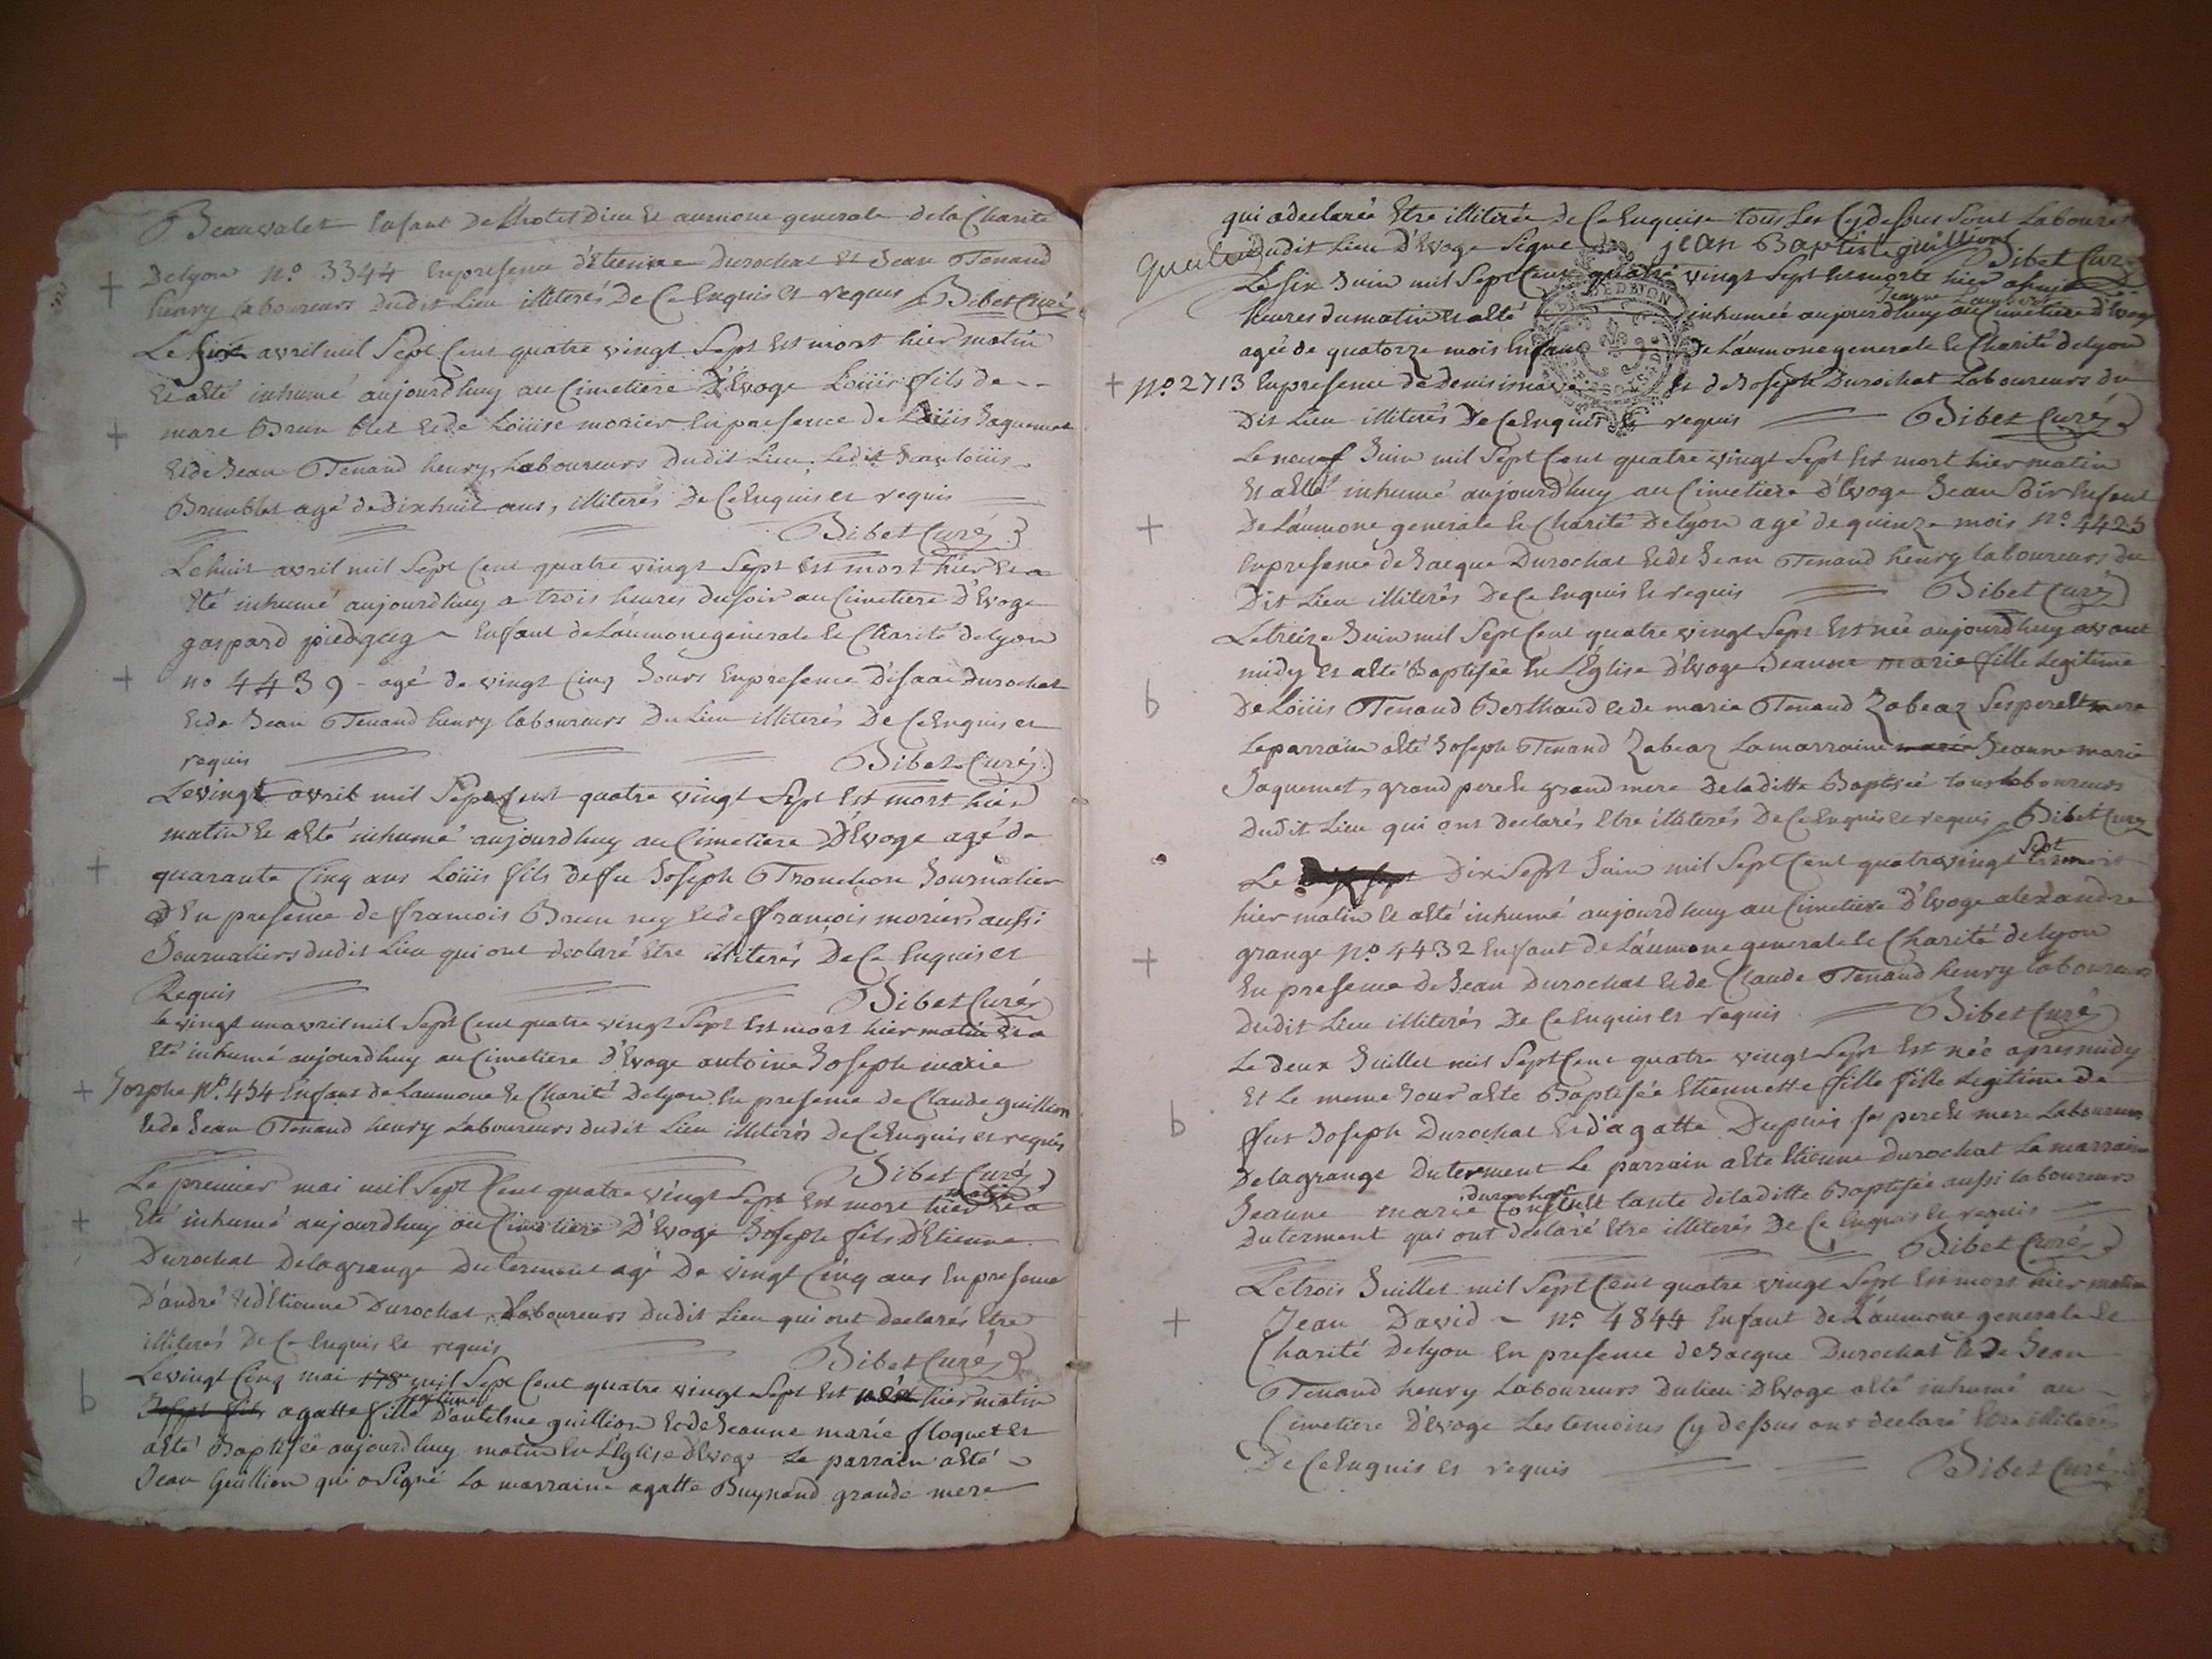 Beauvalet Enfant De L'hotel Dieu et aumone generale de la Charité
+ Delyon N.o 3344 En presence d'Etienne Durochat et Jean Tenand
henry laboureurs dudit Lieu illiterés De Ce Enquis et requis Bibet Curé
Le six avril mil Sept Cent quatre vingt Sept Est mort hier matin
Et aEté inhumé aujourdhuy au Cimetiere D'Evoge Loüis fils de
+ marc Brun blet Et de Loüise morier En presence de Loüis Jaquemet
Et de Jean Tenand henry, Laboureurs Dudit Lieu, Ledit Jean loüis
Brunblet agé de Dixhuit ans, illiterés De Ce Enquis et requis
Bibet Curé
Le huit avril mil Sept Cent quatre vingt Sept Est mort hier Et a
Eté inhumé aujourdhuy a trois heures du soir au Cimetiere D'Evoge
gaspard Enfant de L'aumone generale Et Charité delyon
+ no 4439 - agé de vingt Cinq Jours En presence D'isaac Durochat
Et de Jean Tenand henry laboureurs Du Lieu illiterés De Ce Enquis et
requis Bibet Curé
Le vingt avril mil Sept Cent quatre vingt Sept Est mort hier
matin Et aEté inhumé aujourdhuy au Cimetiere D'Evoge agé de
+ quarante Cinq ans Loüis fils de fu Joseph Tronchon Journalier
En presence de francois Brun ney Et de francois moriers aussi
Journaliers dudit Lieu qui ont declaré Etre illiterés De Ce Enquis et
Requis Bibet Curé
le vingt un avril mil Sept Cent quatre vingt Sept Est mort hier matin Et a
Eté inhumé aujourdhuy au Cimetiere D'Evoge antoine Joseph marie
+ Josphe N.o 454 Enfant de Laumone Et Charité Delyon En presence de Claude guillion
Et de Jean Tenand henry Laboureurs dudit Lieu illiterés De Ce Enquis et requis
Bibet Curé
Le premier mai mil Sept Cent quatre vingt Sept Est mort hier matin Et a
+ Eté inhumé aujourdhuy au Cimetiere D'Evoge Joseph fils D'Etienne
Durochat Delagrange Du terment agé De vingt Cinq ans En presence
D'andré Et d'Etienne Durochat, Laboureurs dudit Lieu qui ont declarés Etre
illiterés De Ce Enquis Et requis
Bibet Curé
Le vingt Cinq mai 178 mil Sept Cent quatre vingt Sept Est née hier matin
b Joseph fils agatte fille legitime D'antelme guillion Et de Jeanne marie floquet Et
aEté Baptisée aujourdhuy matin En L'Eglise d'Evoge Le parrain aEté
Jean Guillion qui a Signé La marraine agatte Buynand grande mere
qui a declarée Etre illiterée De Ce Enquise tous Les Cy dessus Sont Laboures
dudit Lieu D'Evoge Signe jean Baptiste guillion
Bibet Curé
Le Six Juin mil Sept Cent quatre vingt Sept Est morte hier a
heures du matin Et aEté inhumée aujourdhuy au Cimetiere d'Evoge
Jeanne Lambert
agée de quatorze mois Enfant De L'aumone generale Et Charité delyon
+ N.o 2713 En presence de Denis Et de Joseph Durochat Laboureurs du
Dit Lieu illiterés De Ce Enquis Et requis Bibet Curé
Le neuf Juin mil Sept Cent quatre vingt Sept Est mort hier matin
Et aEté inhumé aujourdhuy au Cimetiere d'Evoge Jean Enfant
+ De L'aumone generale Et Charité Delyon agé de quinze mois N.o 4425
En presence de Jacque Durochat Et de Jean Tenand henry laboureurs du
Dit Lieu illiterés De Ce Enquis Et requis Bibet Curé
Le treize Juin mil Sept Cent quatre vingt Sept Est née aujourdhuy avant
midy Et aEté Baptisée En L'Eglise D'Evoge Jeanne marie fille Legitime
b De Loüis Tenand Berthaud Et de marie Tenand Zabeaz Ses pere Et mere
Le parrain aEté Joseph Tenand Zabeaz La marraine marie Jeanne marie
Jaquemet, grand pere Et grand mere De laditte Baptisée tous laboureurs
dudit Lieu qui ont declarés Etre illiterés De Ce Enquis Et requis Bibet Curé
Le Dix Sept Juin mil Sept Cent quatre vingt Sept Est mort
hier matin Et aEté inhumé aujourdhuy au Cimetiere D'Evoge alexandre
+ grange N.o 4432 Enfant de L'aumone generale Et Charité delyon
En presence De Jean Durochat Et de Claude Tenand henry laboureurs
dudit Lieu illiterés De Ce Enquis Et requis Bibet Curé
Le deux Juillet mil Sept Cent quatre vingt Sept Est née apres midy
Et Le meme Jour aEté Baptisée Etiennette fille fille Legitime de
b Joseph Durochat Et d'agatte Dupuis ses pere Et mere Laboureurs
Delagrange Du terment Le parrain aEté Etienne Durochat La marraine
Jeanne marie durochat tante deladitte Baptisée aussi laboureurs
Du terment qui ont declaré Etre illiterés De Ce Enquis Et requis
Bibet Curé
Le trois Juillet mil Sept Cent quatre vingt Sept Est mort hier matin
+ Jean David - N.o 4844 Enfant De L'aumone generale Et
Charité Delyon En presence de Jacque Durochat Et De Jean
Tenand henry Laboureurs Du lieu D'Evoge aEté inhumé au
Cimetiere D'Evoge Les temoins Cy dessus ont declaré Etre illiterés
De Ce Enquis Et requis Bibet Curé